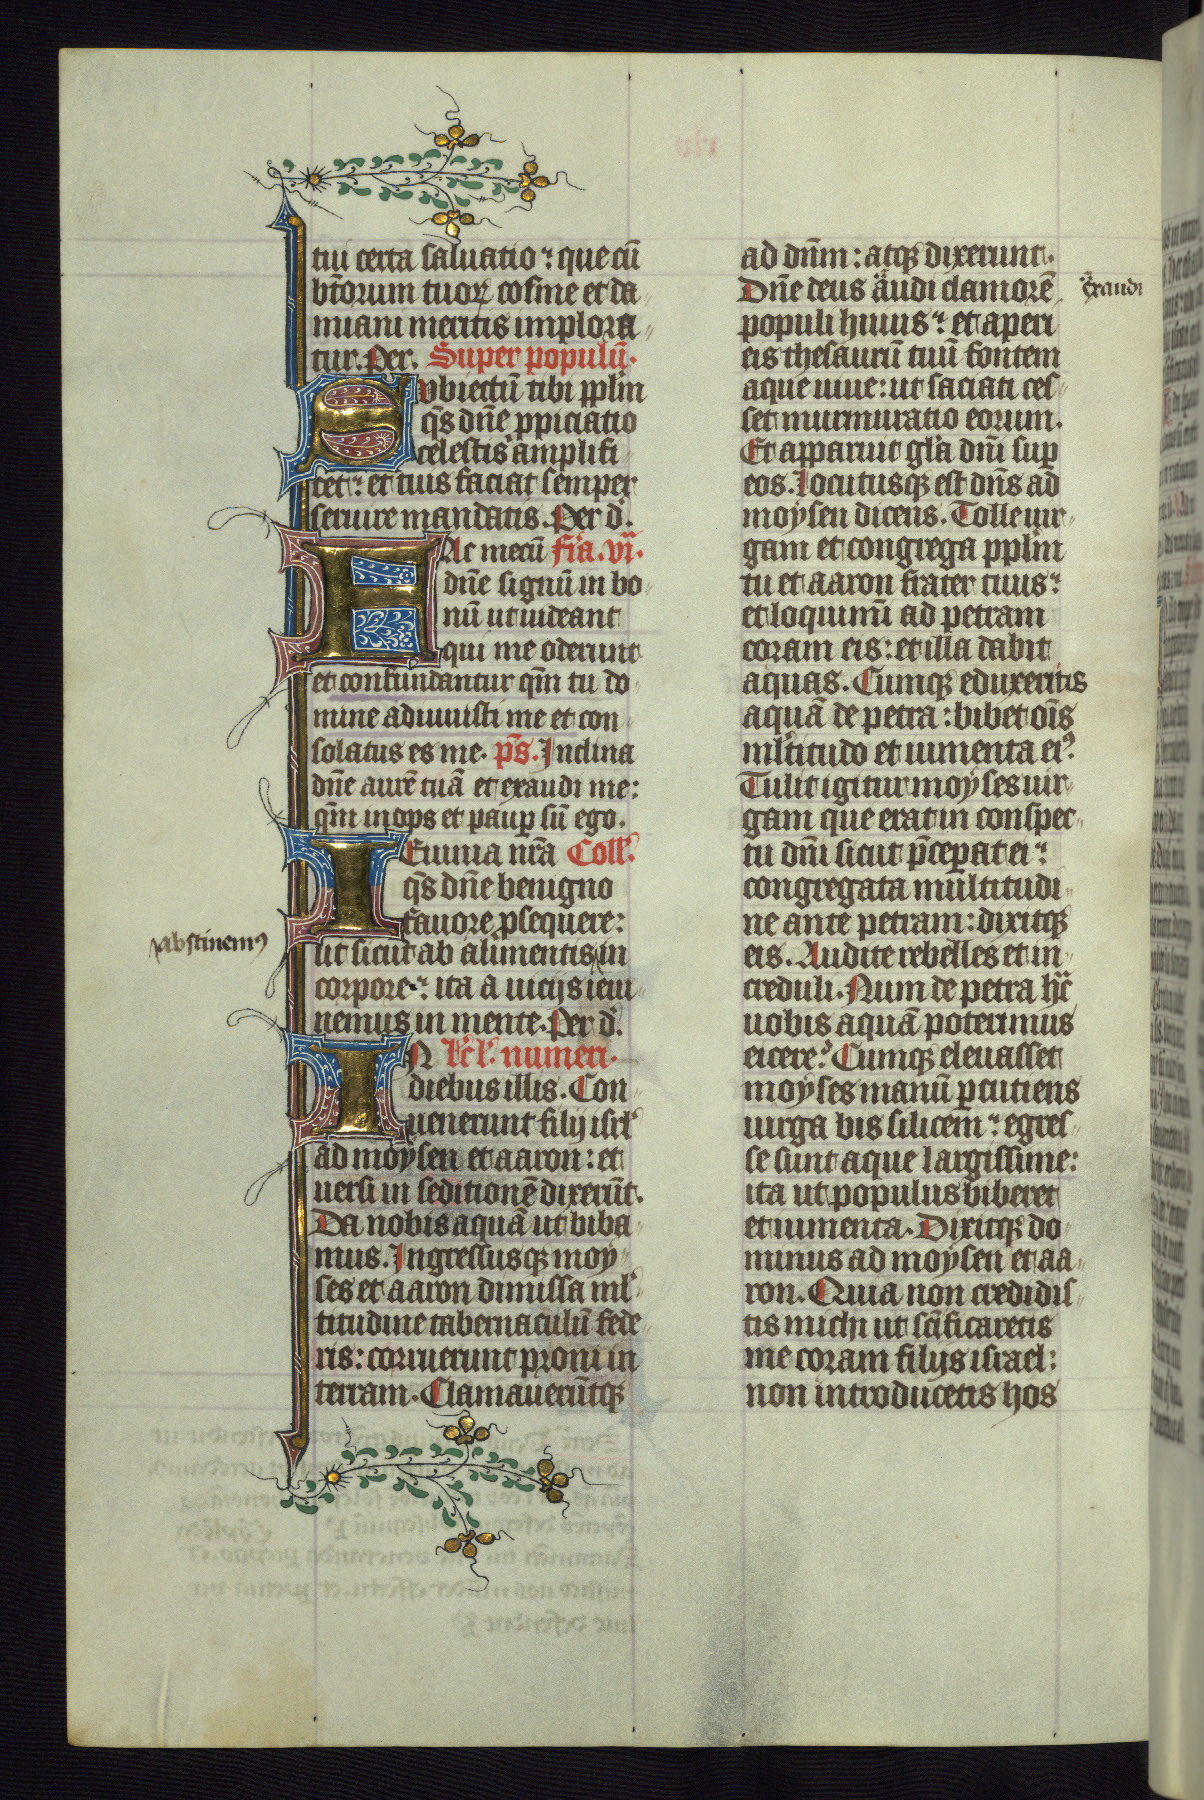 tui certa saluatio: que cũ
btõrum tuoꝝ cosme et da
miani meritis implora
tur. Per. Super populũ.
Subiectũ tibi pplm̃
q̃s dñe ppiciatio
celestis amplifi
cet: et tuis faciat semper
seruire mandatis. Per d.
FAc mecũ fr̃a. vi.
dñe signũ in bo
nũ ut uideant
qui me oderunt
et confundantur qm̃ tu do
mine adiuuisti me et con
solatus es me. ps̃. Inclina
dñe aurẽ tuã et exaudi me:
qm̃ inops et paup sũ ego.
IEiunia nr̃a Coll.
q̃s dñe benigno
fauore psequere:
abstinemꝰ
ut sicut ab alimentis in
corpore: ita a uicijs ieiu
nemus in mente. Per d.
IN lc̃l. numeri.
diebus illis. Con
uenerunt filij isrl
ad moysen et aaron: et
uersi in seditionẽ dixerũt.
Da nobis aquã ut biba
mus. Ingressusqꝫ moy
ses et aaron dimissa ml
titudine tabernaculũ fede
ris: corruerunt proni in
terram. Clamauerũtqꝫ
ad dñm: atqꝫ dixerunt.
Dñe deus audi clamorẽ
exaudi
populi huius: et aperi
eis thesaurũ tuũ fontem
aque uiue: ut saciati ces
set murmuratio eorum.
Et apparuit gl̃a dñi sup
eos. Locutusqꝫ est dñs ad
moysen dicens. Tolle uir
gam et congrega pplm̃
tu et aaron frater tuus:
et loquimĩ ad petram
coram eis: et illa dabit
aquas. Cumqꝫ eduxeritis
aquã de petra: bibet oĩs
mltitudo et iumenta eiꝰ.
Tulit igitur moyses uir
gam que erat in conspec
tu dñi sicut p̃cepat ei:
congregata multitudi
ne ante petram: dixitqꝫ
eis. Audite rebelles et in
creduli. Num de petra hac̃
uobis aquã poterimus
eicere? Cumqꝫ eleuasset
moyses manũ pcutiens
uirga bis silicem: egres
se sunt aque largissime:
ita ut populus biberet
et iumenta. Dixitqꝫ do
minus ad moysen et aa
ron. Quia non credidis
tis michi ut scĩficaretis
me coram filijs israel:
non introducetis hos